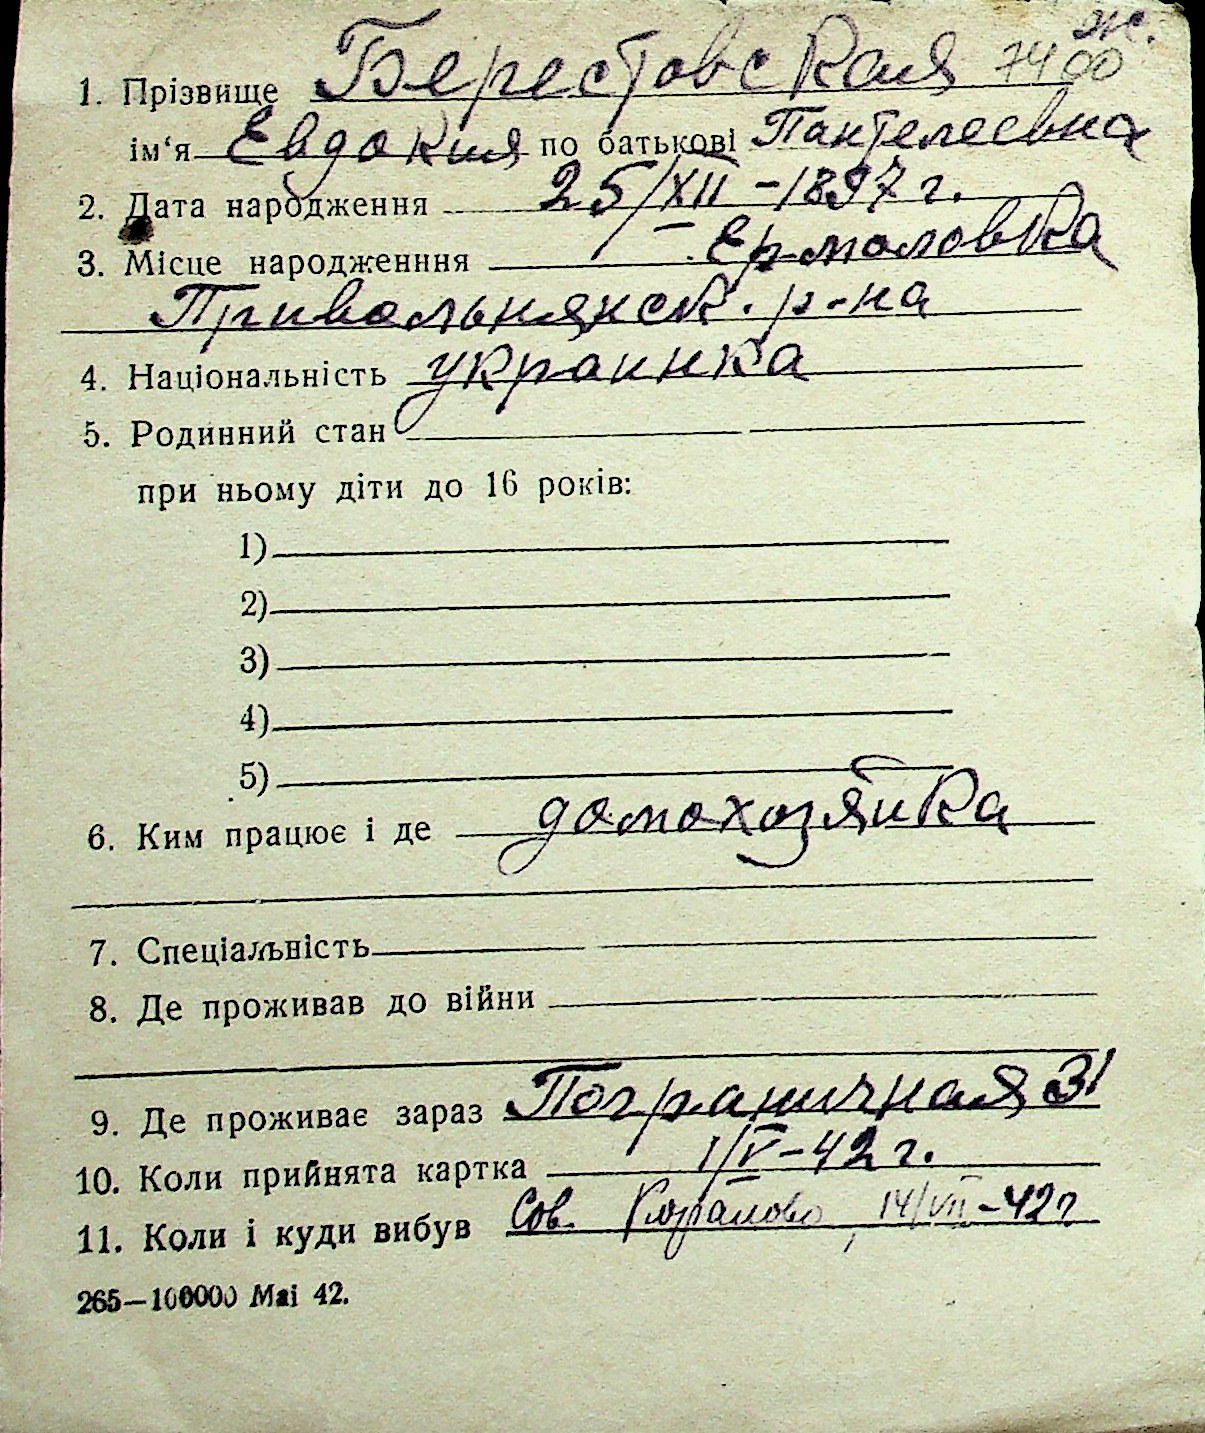 ж.
1. Прізвище Берестовская 7400
ім‘я Евдокия по батькові Пантелеевна
2. Дата народження 25/XII – 1897 г.
3. Місце народженння Ермоловка
Привольнянск. р-на
4. Національність украинка
5. Родинний стан
при ньому діти до 16 років:
1)
2)
3)
4)
5)
6. Ким працює і де домохозяйка
7. Спеціальність
8. Де проживав до війни
9. Де проживає зараз Пограничная 31
10. Коли прийнята картка 1/V – 42 г.
11. Коли і куди вибув Сов. 14/VII – 42 г
265—100000 Mai 42.